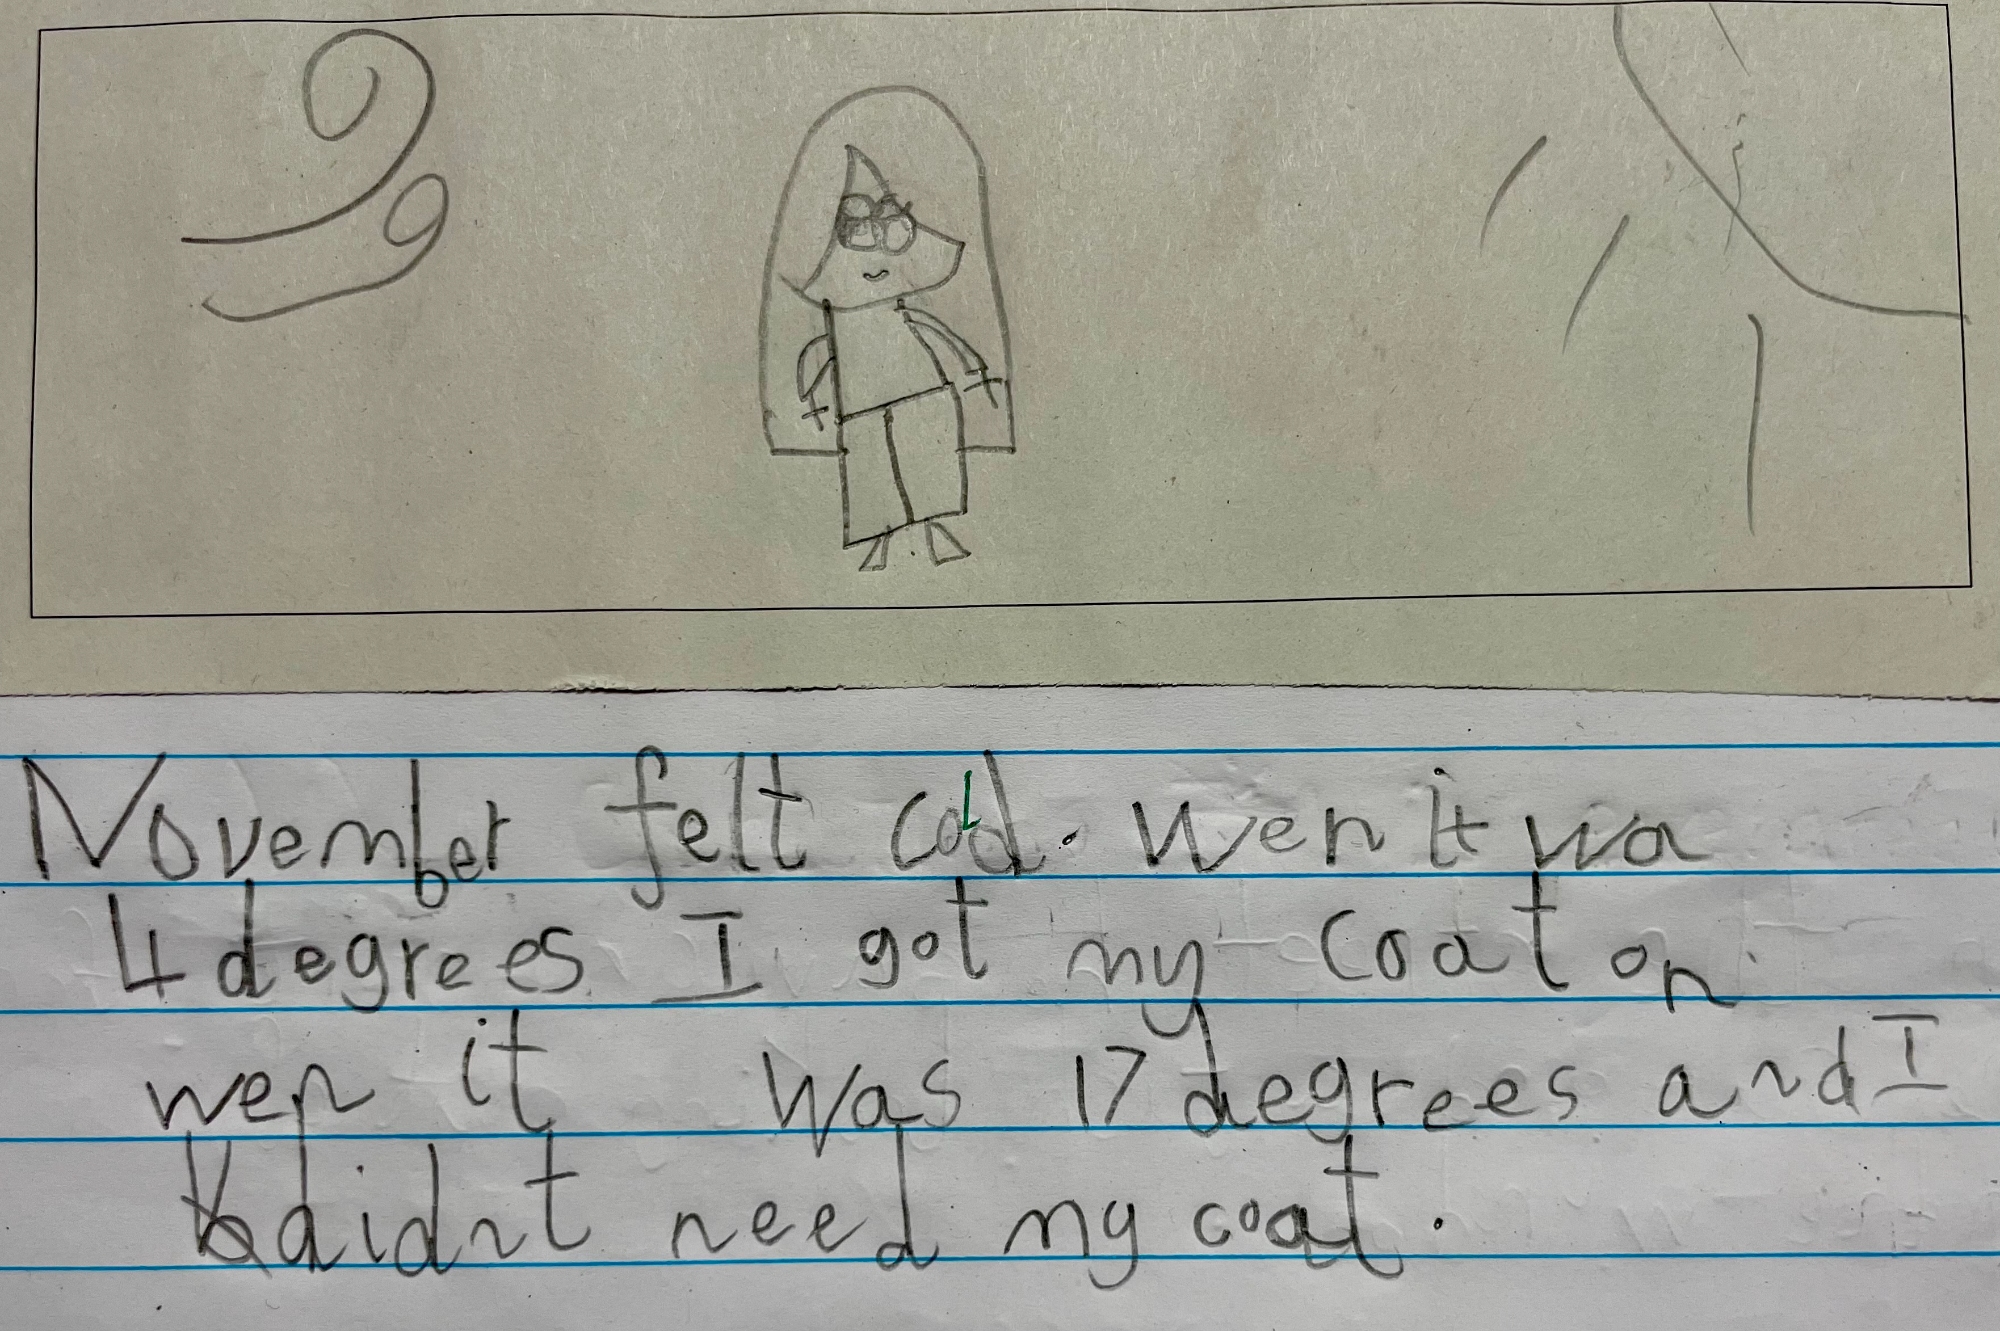 November felt cold. Wen it wa
4 degrees I got my coat on.
wen it was 17 degrees and I
didnt need my coat.